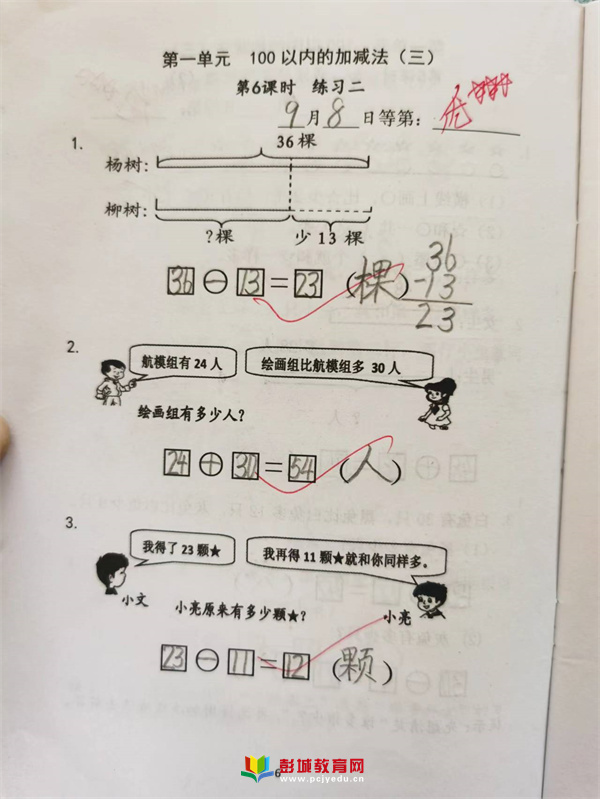 第一单元 100以内的加减法(三)
第6课时 练习二
9月8日等第:优
1.
36棵
杨树:
柳树:
?棵 少13棵
36-13=23(棵)
36
-13
23
2.
航模组有24人 绘画组比航模组多 30人
绘画组有多少人?
24+30=54(人)
3.
我得了23颗★ 我再得11颗★就和你同样多。
小文 小亮原来有多少颗★? 小亮
23-11=12(颗)
6
彭城教育网
www.pcjyedu.cn